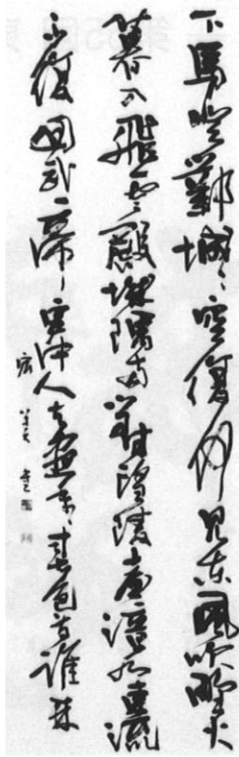 下馬登鄴城〻空復何見東風吹野火
暮入飛雲殿城隅南對望陵臺漳水東流
不復回武帝宮中人去盡年〻春色為誰来